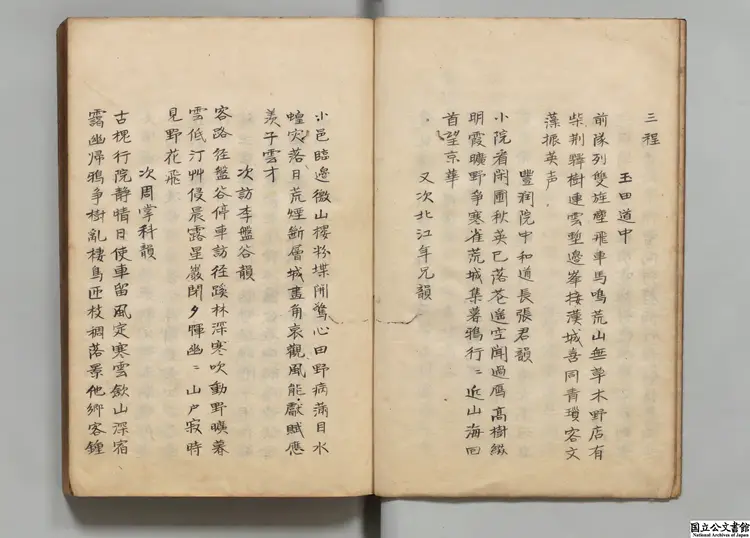 三程
玉田道中
前隊列雙旌塵飛車馬鳴荒山無草木野店有
柴荆驛樹連雲塹邊峯接漢城喜同青瑣客文
藻振英声
豐潤院中和道長張君韻
小院省閑圃秋英已落苍遥空聞過鴈高樹綴
明霞曠野爭寒雀荒城集暮鴉行〻近山海回
首望京華
又次北江年兄韻
小邑臨邊徼山樓粉堞開驚心田野病滿目水
蝗灾落日荒煙断層城畫角哀觀風能獻賦應
羨子雲才
次訪李盤谷韻
客路径盤谷停車訪径蹊林深寒吹動野曠暮
雲低汀艸侵晨露星巌閉夕暉幽〻山户寂時
見野花飛
次周掌科韻
古槐行院静晴日使車留風定寒雲歛山深宿
靄幽帰鴉爭樹亂棲鳥匝枝稠落景他鄉客鍾
国立公文書館
National Archives of Japan